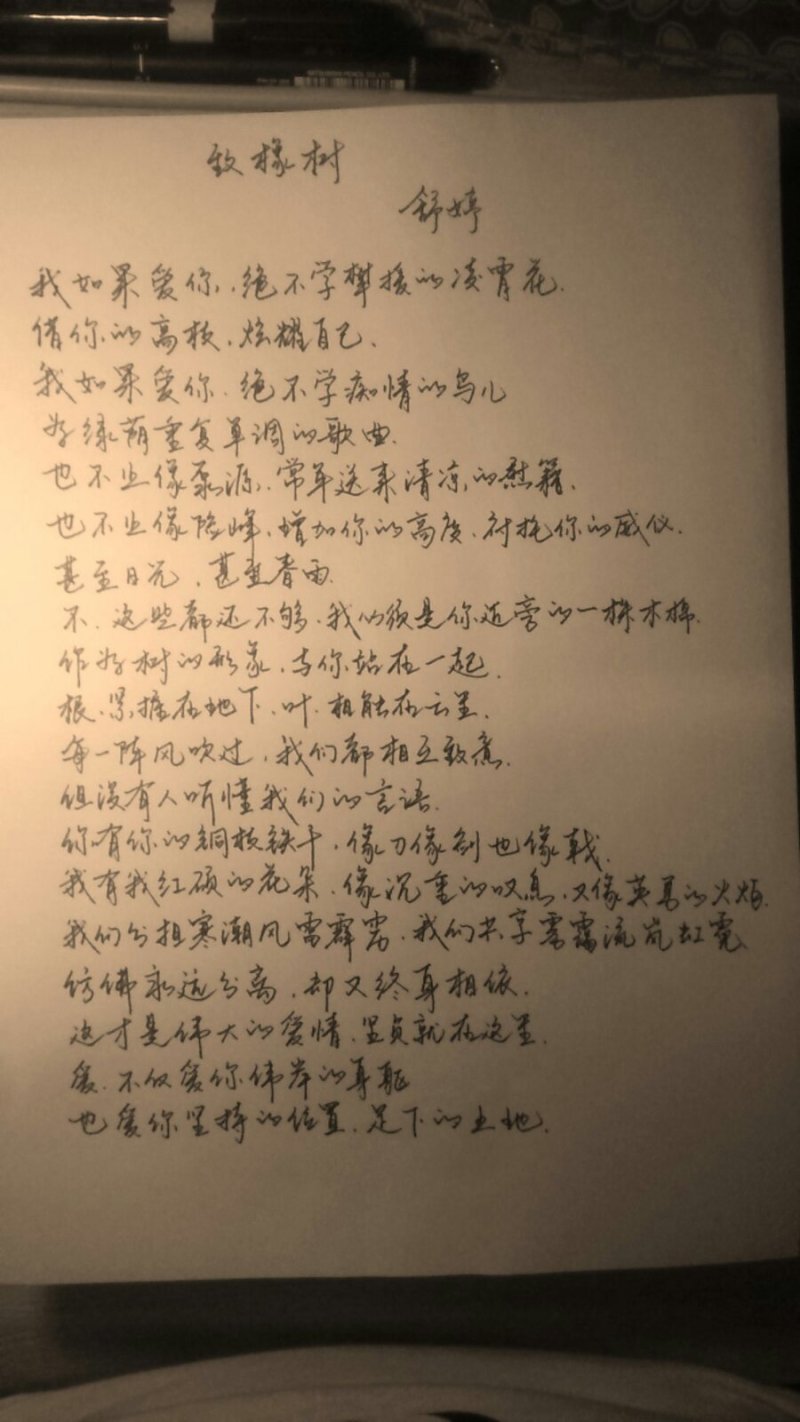 致橡树
舒婷
我如果爱你，绝不学攀援的凌霄花.
借你的高枝，炫耀自己.
我如果爱你，绝不学痴情的鸟儿
为绿荫重复单调的歌曲.
也不止像泉源，常年送来清凉的慰籍.
也不止像险峰，增加你的高度，衬托你的威仪.
甚至日光，甚至春雨.
不，这些都还不够，我必须是你近旁的一株木棉.
作为树的形象，与你站在一起.
根，紧握在地下，叶，相触在云里.
每一阵风吹过，我们都相互致意.
但没有人听懂我们的言语.
你有你的铜枝铁干，像刀像剑也像戟.
我有我红硕的花朵，像沉重的叹息，又像英勇的火炬.
我们分担寒潮风雷霹雳，我们共享雾霭流岚虹霓
仿佛永远分离，却又终身相依.
这才是伟大的爱情，坚贞就在这里.
爱，不仅爱你伟岸的身躯
也爱你坚持的位置，足下的土地.